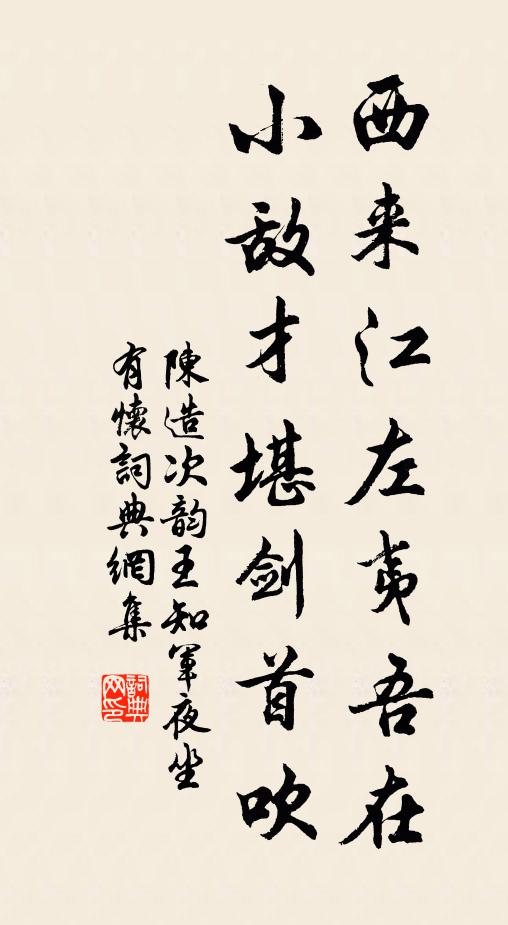 西来江左夷吾在
小敌才堪剑首吹
陳造次韵王知軍夜坐
有懷詞典網集
詞典网印